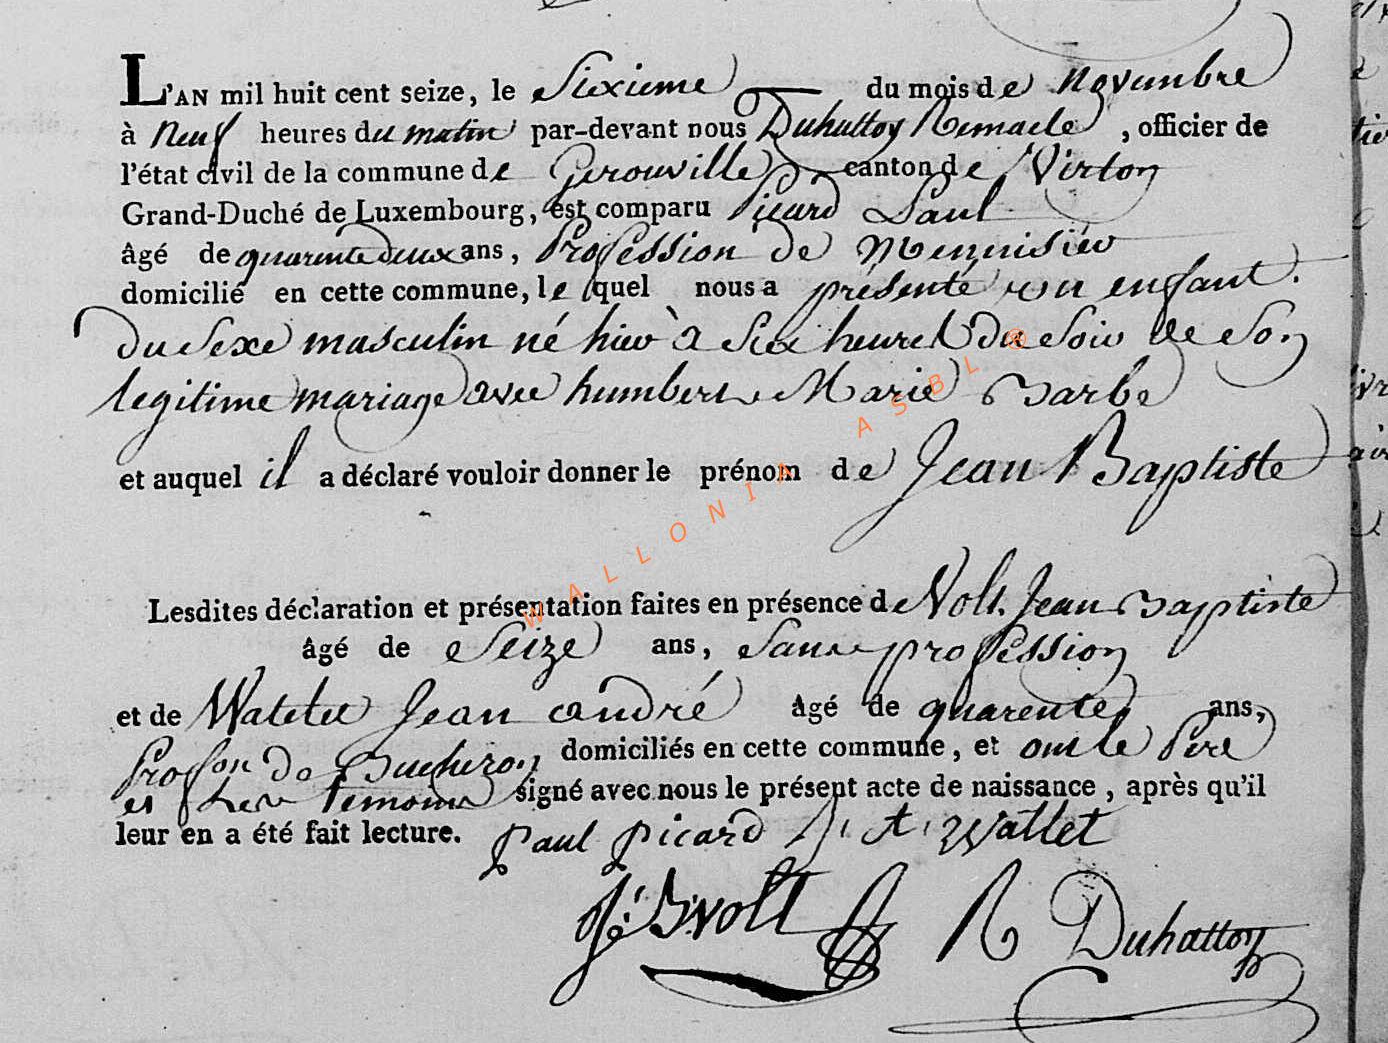 L'AN mil huit cent seize, le Sixieme du mois de novembre
à Neuf heures du matin par-devant nous Duhattoy Remacle, officier de
l'état civil de la commune de Gerouville canton de Virton
Grand-Duché de Luxembourg, est comparu Picard Paul
âgé de quarente deux ans, Profession de Menuisier
domicilié en cette commune, le quel nous a présenté un enfant.
Du Sexe masculin né hier à Six heures Du Soir de Son
legitime mariage avec humbert Marie Barbe
et auquel il a déclaré vouloir donner le prénom de Jean Baptiste
Lesdites déclaration et présentation faites en présence de Volt. Jean Baptiste
âgé de Seize ans, Sans profession
et de Watelet Jean andré âgé de quarente ans,
Profon De Bucheron domiciliés en cette commune, et ont le Père
et temoins signé avec nous le présent acte de naissance, après qu'il
leur en a été fait lecture. Paul picard J. A. Wattet
J B volt R Duhattoy
WALLONIA ASBL ®